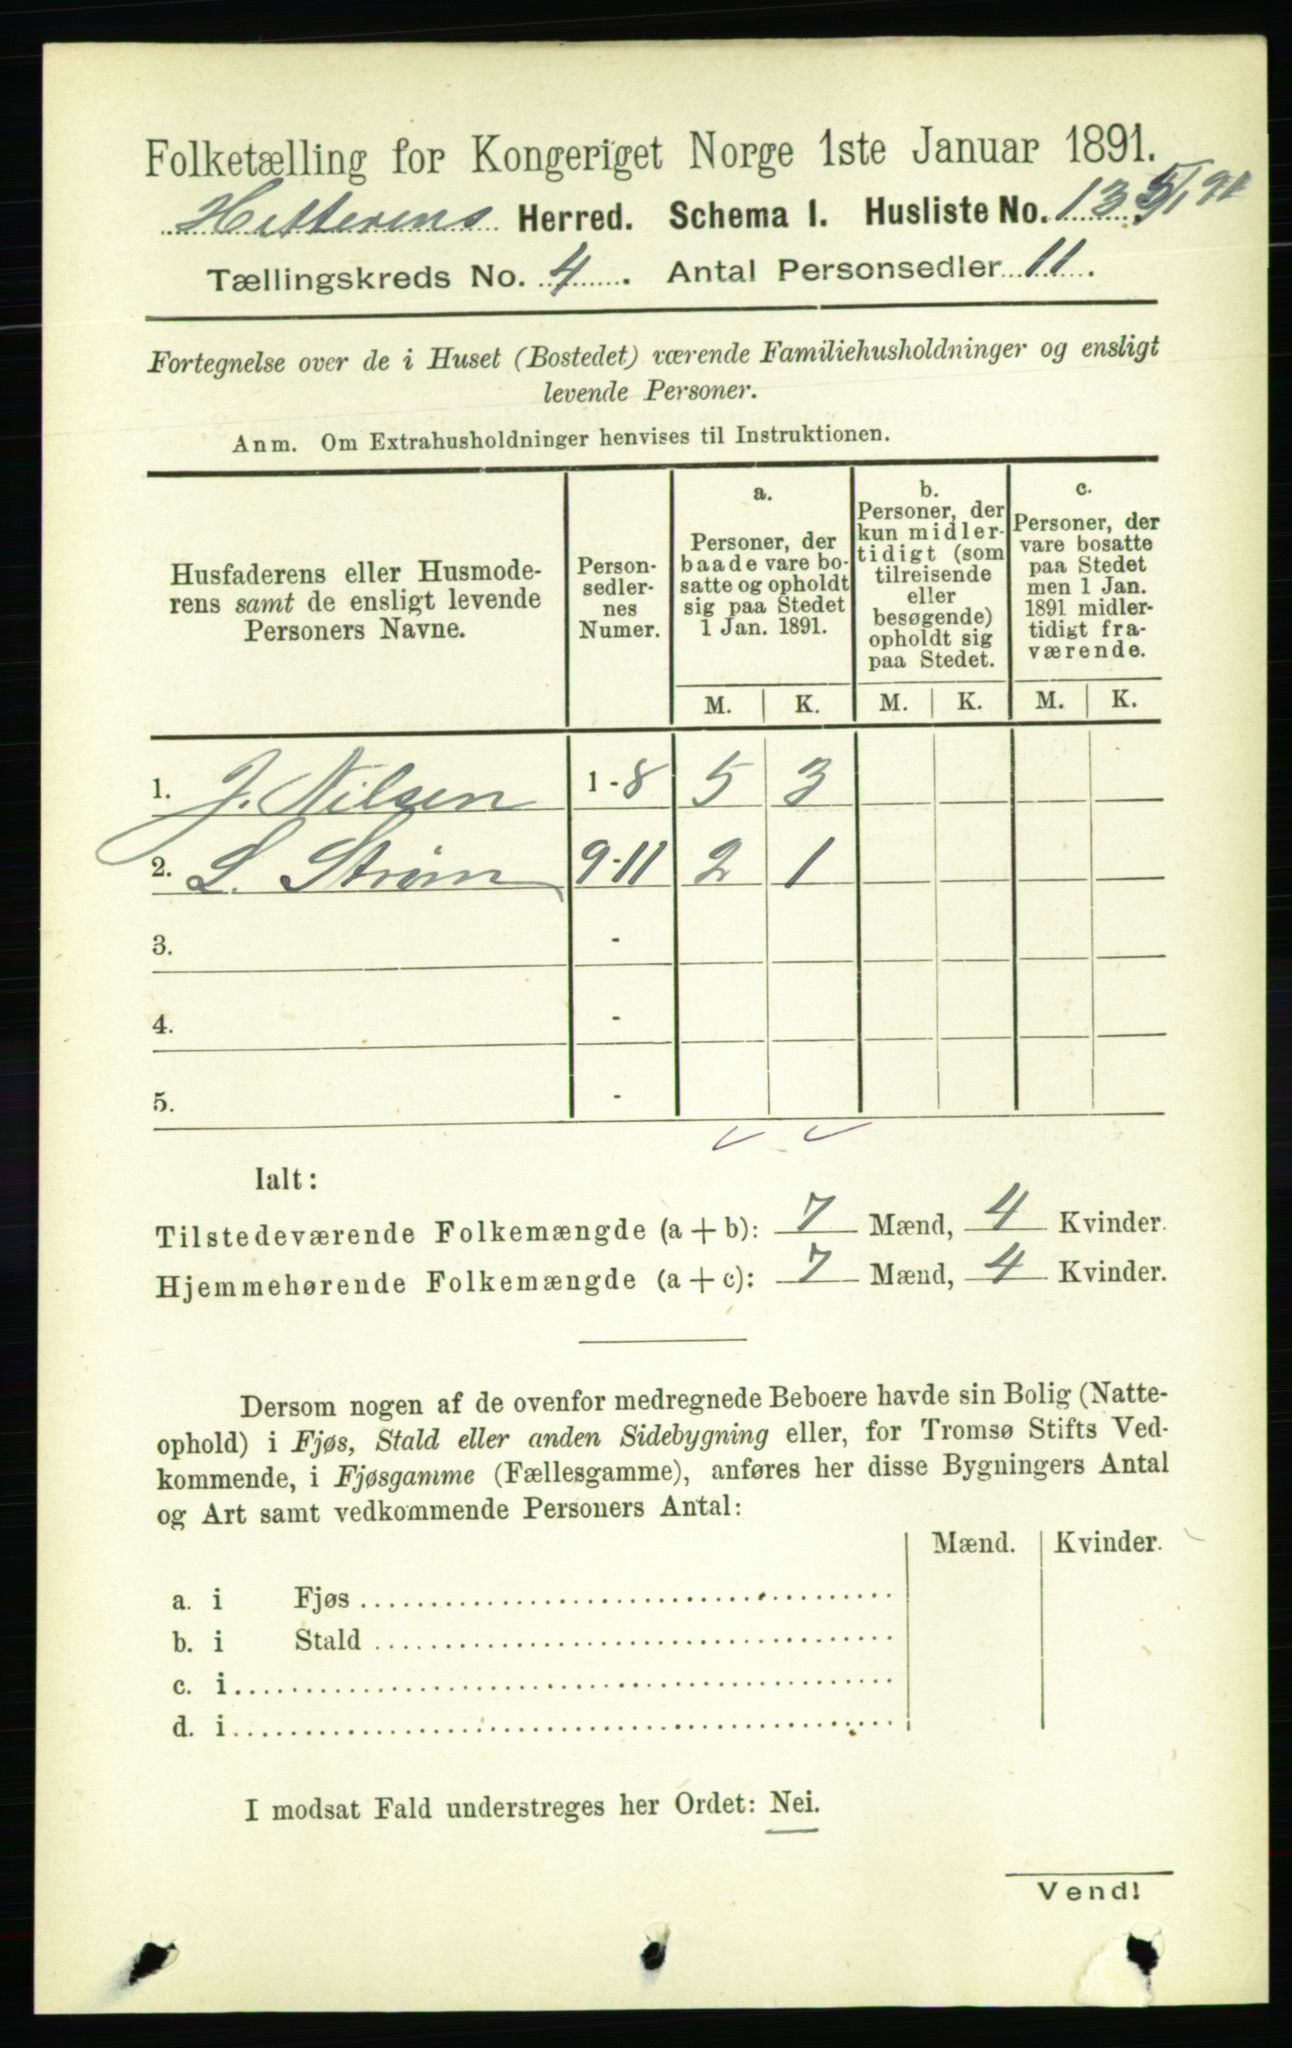 Folketælling for Kongeriget Norge 1ste Januar 1891.
Hitterens Herred. Schema I. Husliste No. 13 5/1 91
Tællingskreds No. 4. Antal Personsedler 11.
Fortegnelse over de i Huset (Bostedet) værende Familiehusholdninger og ensligt
levende Personer.
Anm. Om Extrahusholdninger henvises til Instruktionen.
Husfaderens eller Husmode-
rens samt de ensligt levende
Personers Navne.
Person-
sedler-
nes
Numer.
a.
Personer, der
baade vare bo-
satte og opholdt
sig paa Stedet
1 Jan. 1891.
b.
Personer, der
kun midler-
tidigt (som
tilreisende
eller
besøgende)
opholdt sig
paa Stedet.
c.
Personer, der
vare bosatte
paa Stedet
men 1 Jan.
1891 midler-
tidigt fra-
værende.
M. K. M. K. M. K.
1. J. Nilsen 1-8 5 3
2. L. Strøm 9-11 2 1
3. -
4. -
5. -
Ialt:
Tilstedeværende Folkemængde (a + b): 7 Mænd, 4 Kvinder.
Hjemmehørende Folkemængde (a + c): 7 Mænd, 4 Kvinder.
Dersom nogen af de ovenfor medregnede Beboere havde sin Bolig (Natte-
ophold) i Fjøs, Stald eller anden Sidebygning eller, for Tromsø Stifts Ved-
kommende, i Fjøsgamme (Fællesgamme), anføres her disse Bygningers Antal
og Art samt vedkommende Personers Antal:
Mænd. Kvinder.
a. i Fjøs
b. i Stald
c. i
d. i
I modsat Fald understreges her Ordet: Nei.
Vend!